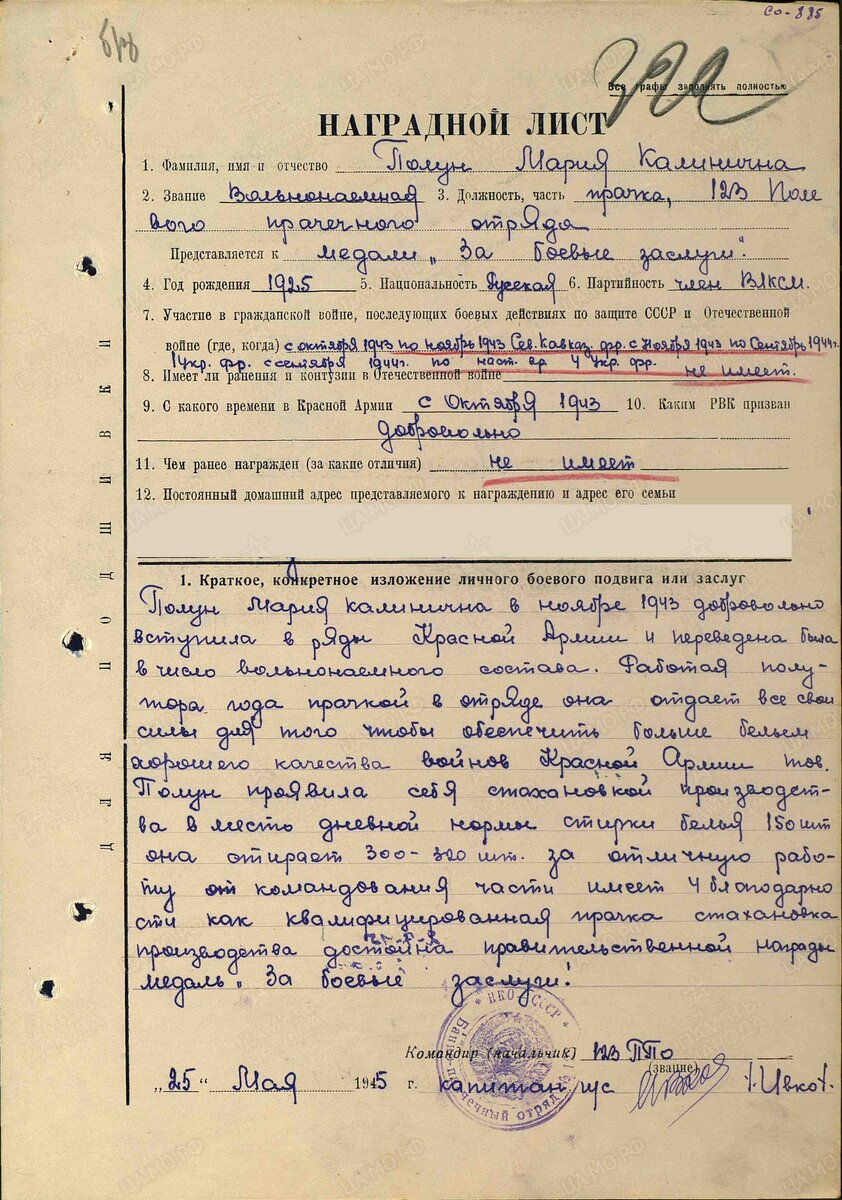 СО-885
Все графы заполнять полностью
НАГРАДНОЙ ЛИСТ
1. Фамилия, имя и отчество Полун Мария Калинична
2. Звание Вольнонаемная 3. Должность, часть прачка, 123 Поле
вого прачечного отряда
Представляется к медали „За боевые заслуги".
4. Год рождения 1925 5. Национальность Русская 6. Партийность член ВЛКСМ.
7. Участие в гражданской войне, последующих боевых действиях по защите СССР и Отечественной
войне (где, когда) с октября 1943 по ноябрь 1943 Сев. Кавказ. фр. с Ноября 1943 по Сентябрь 1944г.
1 Укр. фр. с сентября 1944г. по наст. вр. 4 Укр. фр.
8. Имеет ли ранения и контузии в Отечественной войне не имеет.
9. С какого времени в Красной Армии с Октября 1943 10. Каким РВК призван
добровольно
11. Чем ранее награжден (за какие отличия) не имеет
12. Постоянный домашний адрес представляемого к награждению и адрес его семьи
ДЛЯ ПОДШИВКИ
1. Краткое, конкретное изложение личного боевого подвига или заслуг
Полун Мария Калинична в ноябре 1943 добровольно
вступила в ряды Красной Армии и переведена была
в число вольнонаемного состава. Работая полу-
тора года прачкой в отряде она отдает все свои
силы для того чтобы обеспечить больше бельем
хорошего качества войнов Красной Армии тов.
Полун проявила себя стахановкой производст-
ва в место дневной нормы стирки белья 150 шт
она стирает 300-320 шт. за отличную рабо-
ту от командования части имеет 4 благодарно
сти как квалифицированная прачка стахановка
производства достойна правительственной награды
медаль „За боевые заслуги!
НКО СССР
Командир (начальник) 123 ППО
(звание)
„25" Мая 1945 г. капитан и/с /Ивко/.